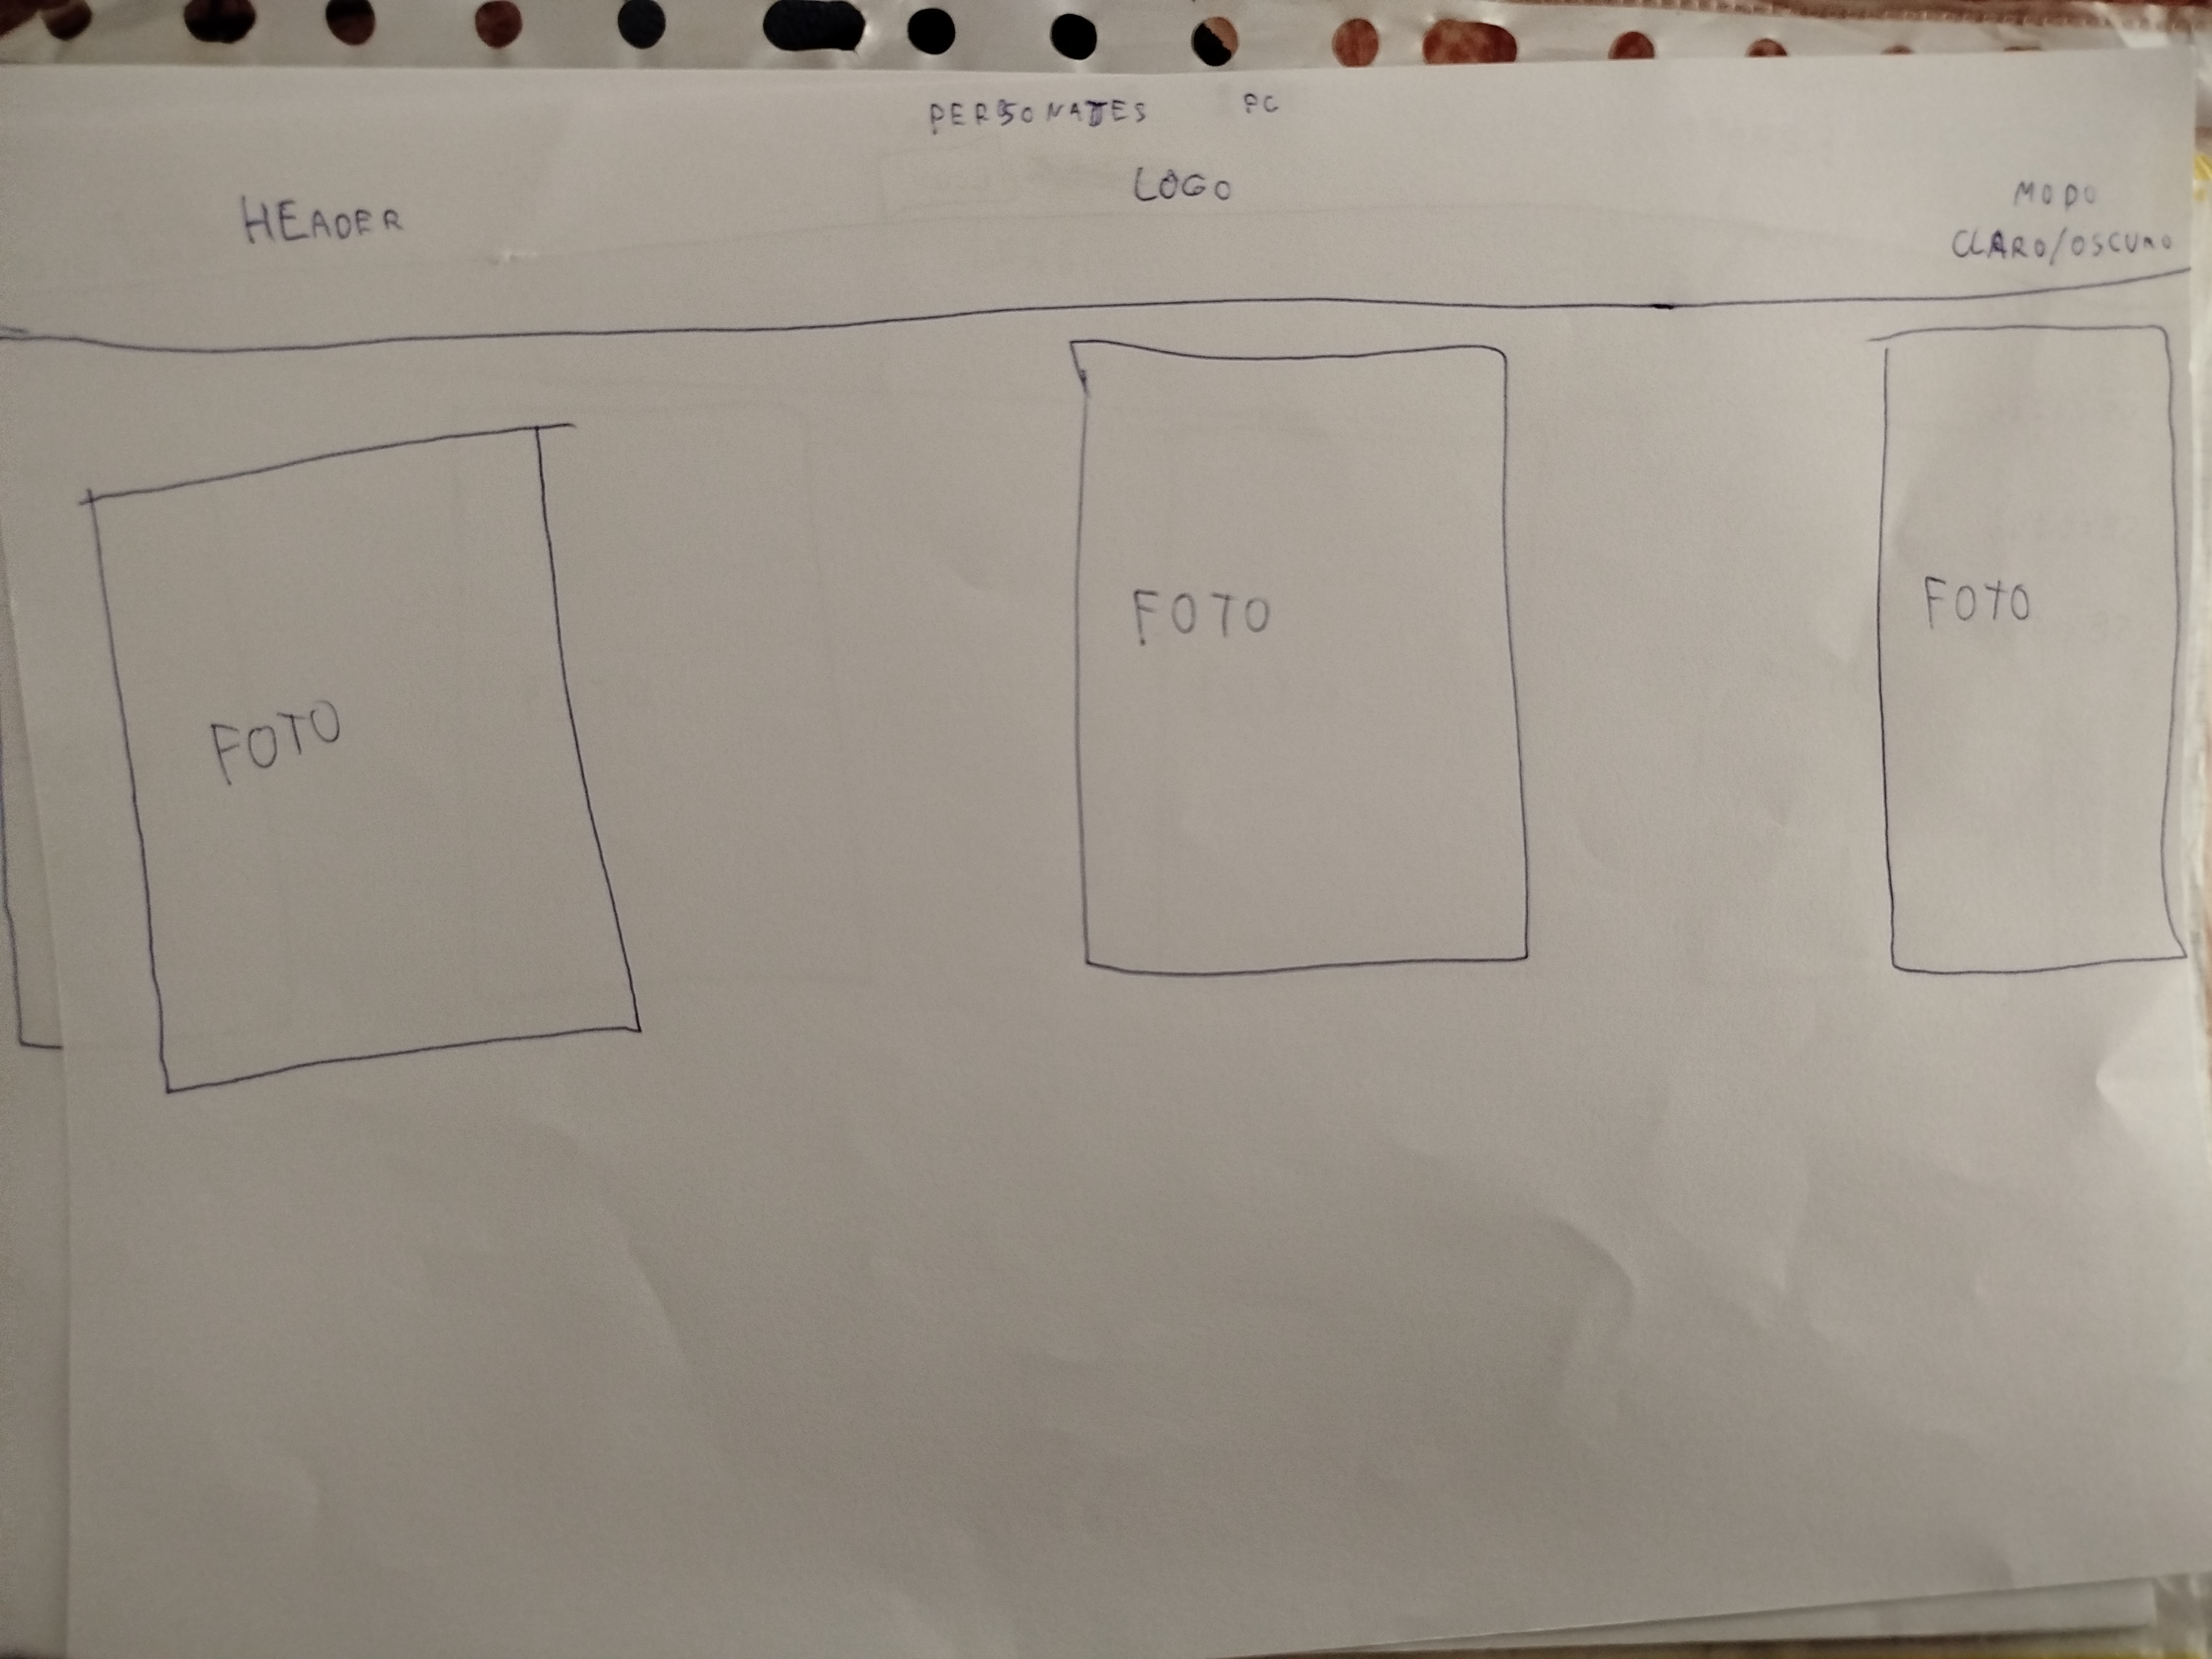 PERSONAJES PC
LOGO
HEADER
MODO
CLARO/OSCURO
FOTO
FOTO
FOTO